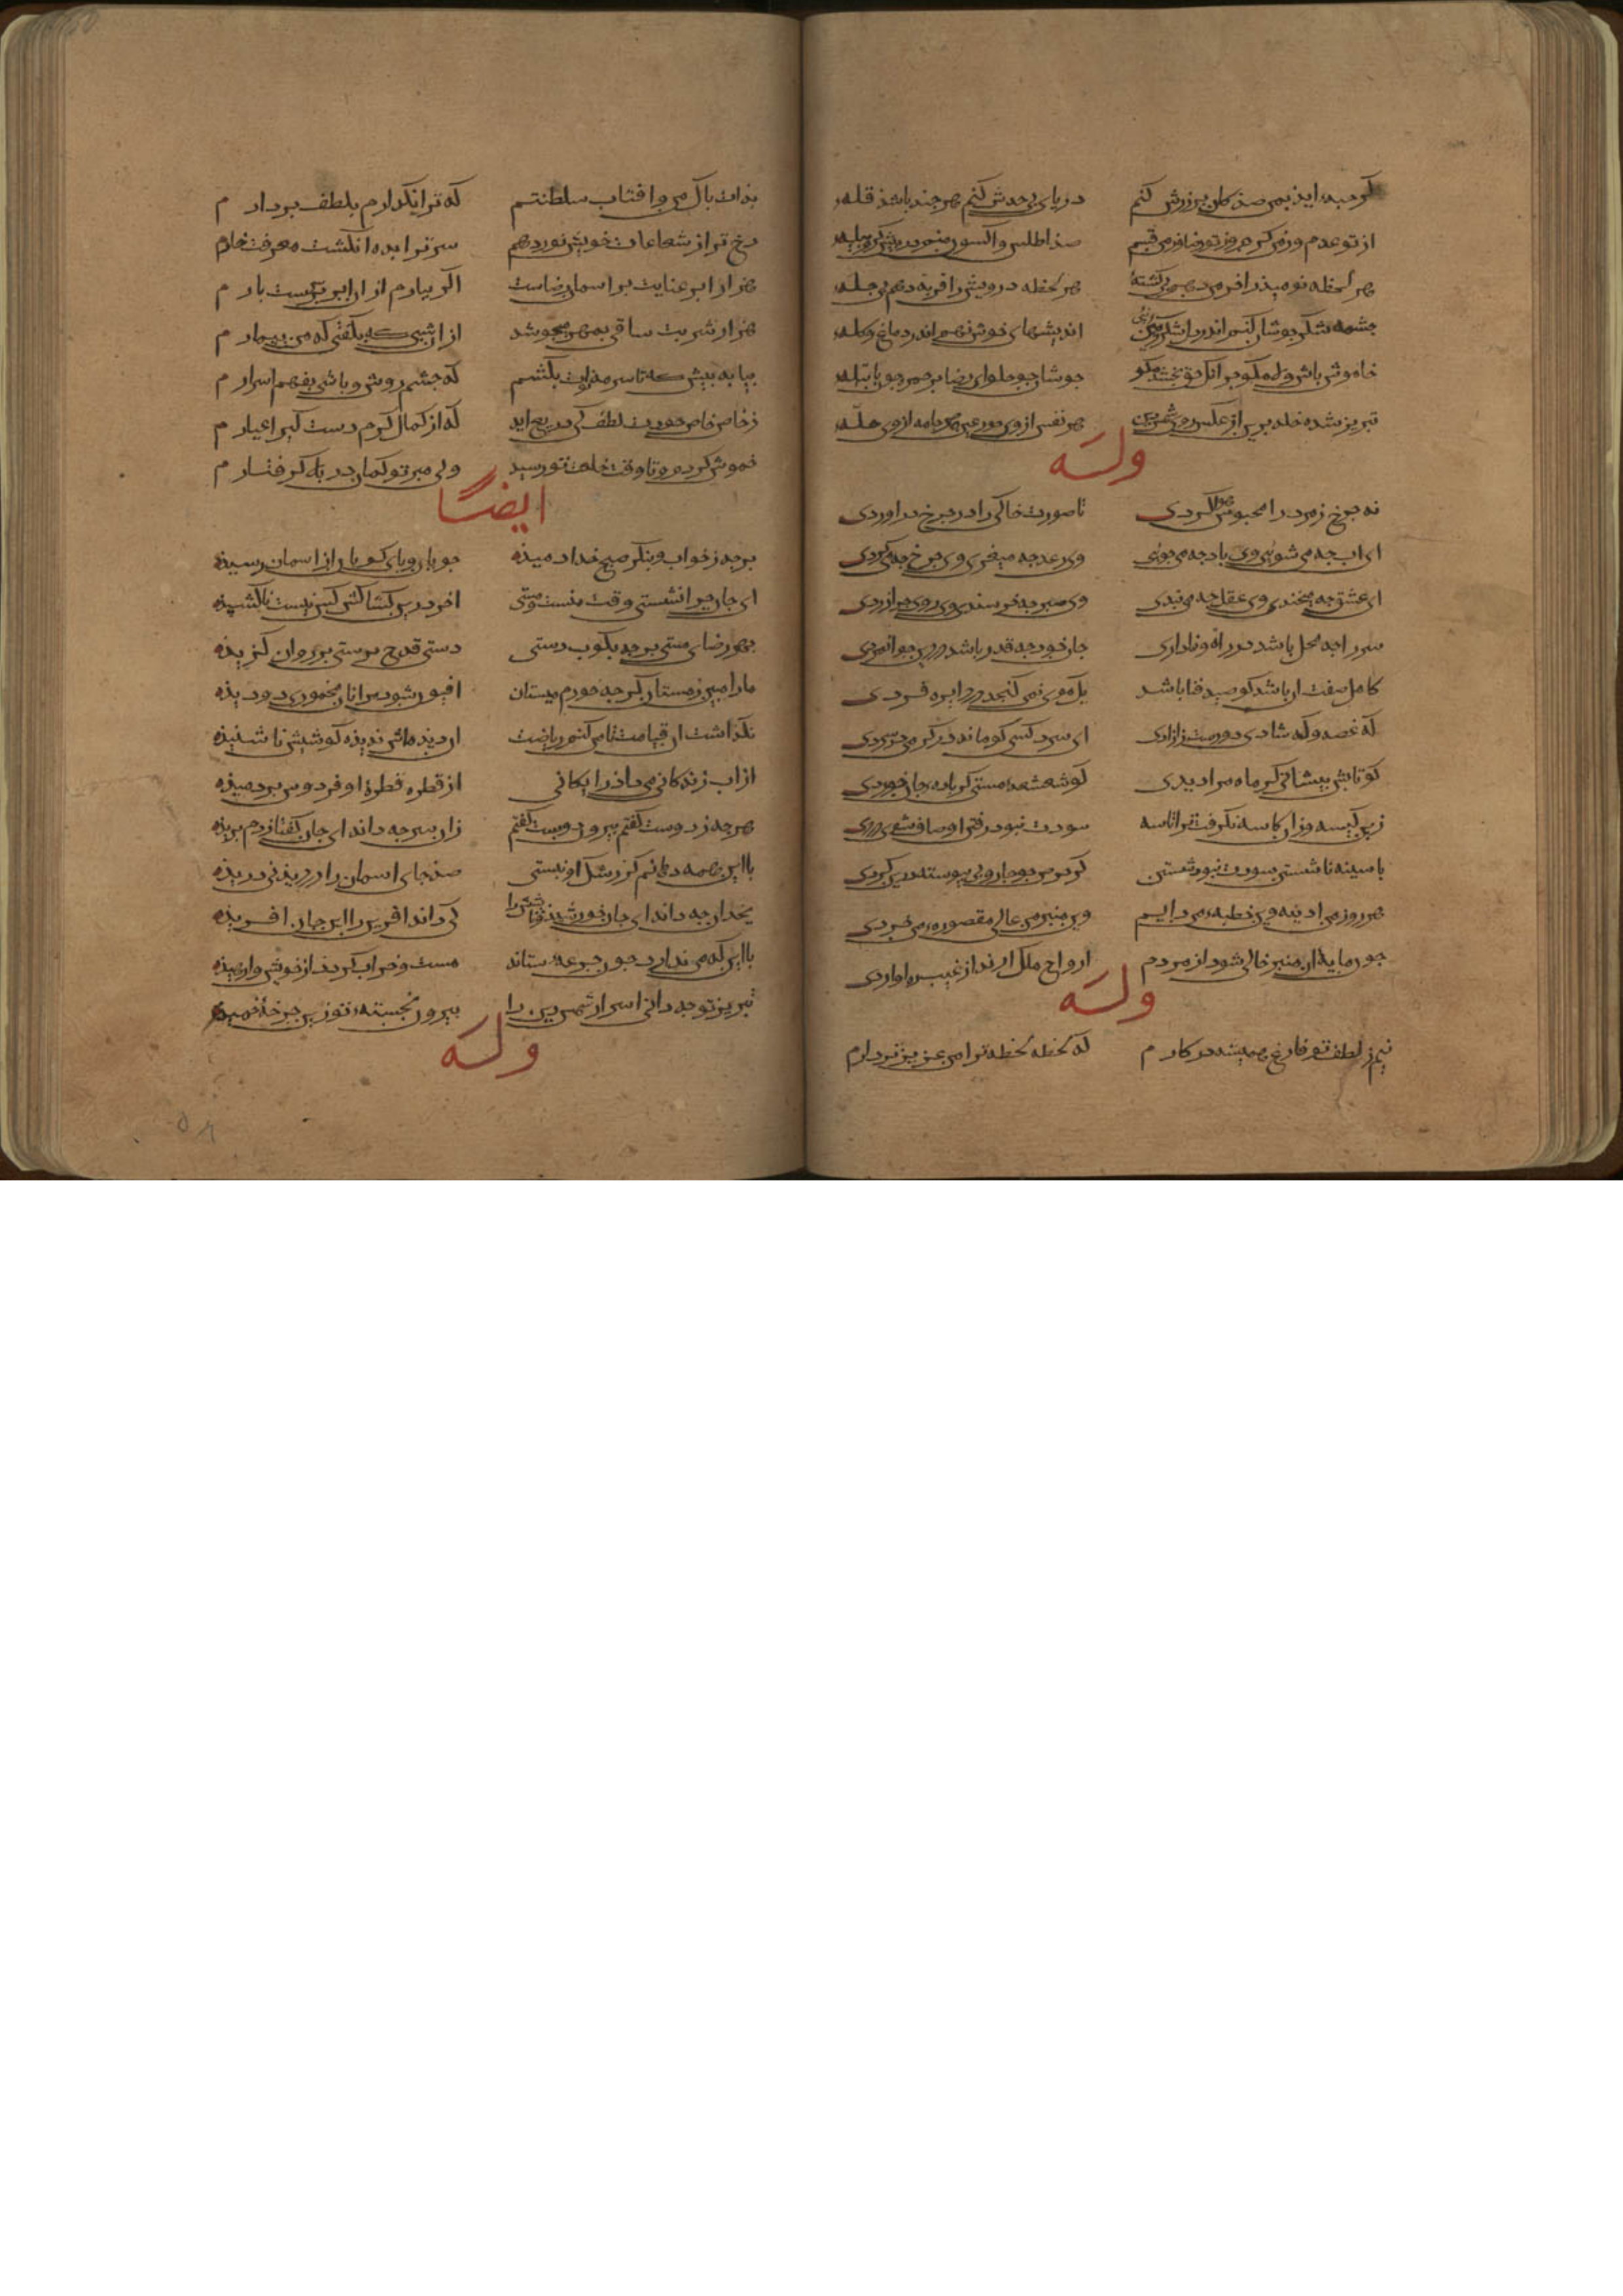 گر حبه اید بمن صد کان پر زرش کنم دریای بی حدش کنم هر چند باشد قله
از تو عدم وز من کرم وز تو رضا وز من قسم صد اطلس و اکسون نهم در پیش کرم پیله
هر لحظه نومید را خرمن دهم بی کشته هر لحظه درویش را قربه دهم بی چله
چشمه شکر جوشان کنم اندر دل تنگ نی اندیشهای خوش نهم اندر دماغ و کله
خاموش باش و لا مگو جز آنک حق بخشد مگو جوشان ز حلوای رضا بر جمر جو پاتیله
تبریز شد خلد برین از عکس روی شمس دین هر نفس ازوی حور عین هر جامه ازوی حله
وله
نه چرخ زمرد را محبوس هوا کردی تا صورت خاکی را در چرخ در اوردی
ای اب چه می شویی وی باد چه می جویی وی رعد چه میغری وی چرخ چه می کردی
ای عشق چه میخندی وی عقل چه می بندی وی صبر چه خرسندی وی روی چرا زردی
سر را چه محل باشد در راه وفاداری جان خود چه قدر باشد در دین جوانمردی
کامل صفت ان باشد کو صید فنا باشد یک موی نمی گنجد در دایره فردی
که غصه و که شادی دورست ز ازادی ای سرد کسی کو ماند در گرمی و در سردی
کو تابش پیشانی گر ماه مرا دیدی کو شعشعه مستی گر باده جان خوردی
زین کیسه وزان کاسه نگرفت ترا تاسه
با سینه ناشسته سودت نبود شستن
هر روز من ادینه وین خطبه من دایم وین منبر من عالی مقصوره من مردی
چون مایه ان منبر خالی شود از مردم ارواح ملک ارند از غیب ره اوردی
وله
نیم ز لطف تو فارغ همیشه در کارم که لحظه لحظه ترا من عزیزتر دارم
بذات پاک من و افتاب سلطنتم که ترا نگذارم بلطف بردارم
رخ ترا ز شعاعات خویش نور دهم سر ترا بده انگشت معرفت خارم
هزار ابر عنایت بر اسمان رضاست اگر بیارم از ان ابر بر سرت بارم
هزار شربت ساقی بمهر میجوشد از ان شبی که بگفتی که من بیمارم
بیا به پیش که تا سرمه نوت بکشم که چشم روش و باشی بفهم اسرارم
ز خاص خاص خودت لطف کی دریغ اید که از کمال کرم دستگیر اغیارم
خموش کردم و تا وقت خلوت تو رسید ولی مبر تو گمان بد که گرفتارم
ایضا
برجه ز خواب و بنگر صبح خدا دمیده جویان و پای کوبان از اسمان رسیده
ای جان چرا نشستی وقت میست و مستی اخر درین کشاکش کس نیست پاکشیده
بهر رضای مستی برجه بکوب دستی دستی قدح پرستی پر روان گزیده
ما را مبین ز مستان هر چه خورم میستان افیون شود مرا نان مخموری دو دیده
نگذاشت ان قیامت تا من کنم ریاضت ان دیدهاش ندیده گوشیش ناشنیده
از اب زندگانی می داد رایگانی از قطره قطره او فردوس بر دمیده
هر چه ز دوست گفتم بیرون پوست گفتم زان سر چه دارد ای جان گفتار دم بریده
با این همه دهانم گر رشک او نبستی صد جای اسمان را در دیدنی دریده
یخدان چه داند ای جان خورشید و تابشش را کی داند افرین را این جان افریده
با این که می نداند چون جرعه ستاند مست و خراب گردد از خویش وارهیده
تبریز تو چه دانی اسرار شمس دین را بیرون نجسته تو زین چرخه خمیده
وله